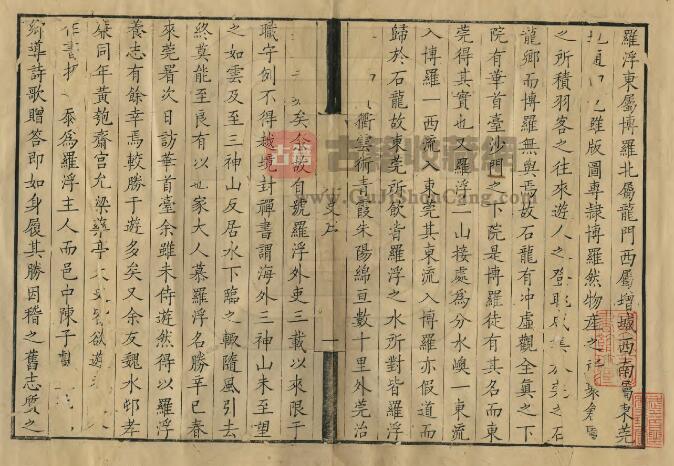 羅浮東屬博羅北屬龍門西屬增城西南屬東莞
雖版圖專隸博羅然物產之
之所積羽客之往來遊人之登眺之石
龍鄉而博羅無與焉故石龍有冲虛觀全真之下
院有華首臺沙門之下院是博羅徒有其名而東
莞得其實也又羅浮一山接處為分水嶼一東流
入博羅一西流入東莞其東流入博羅亦假道而
歸於石龍故東莞所飲皆羅浮之水所對皆羅浮
衢雲術青霞朱陽綿亘數十里外莞治
矣余故自號羅浮外吏三載以來限于
職守例不得越境封禪書謂海外三神山未至望
之如雲及至三神山反居水下臨之輙隨風引去
終莫能至良有以也家大人慕羅浮名勝辛巳春
來莞署次日訪華首臺余雖未侍遊然得以羅浮
養志有餘幸焉較勝于遊多矣又余友魏水邨孝
廉同年黃匏齋宮允梁藥亭欲遊
作書為羅浮主人而邑中陳子
鄉導詩歌贈答即如身履其勝因稽之舊志質之
古籍收藏網
GuJiShouCang.com